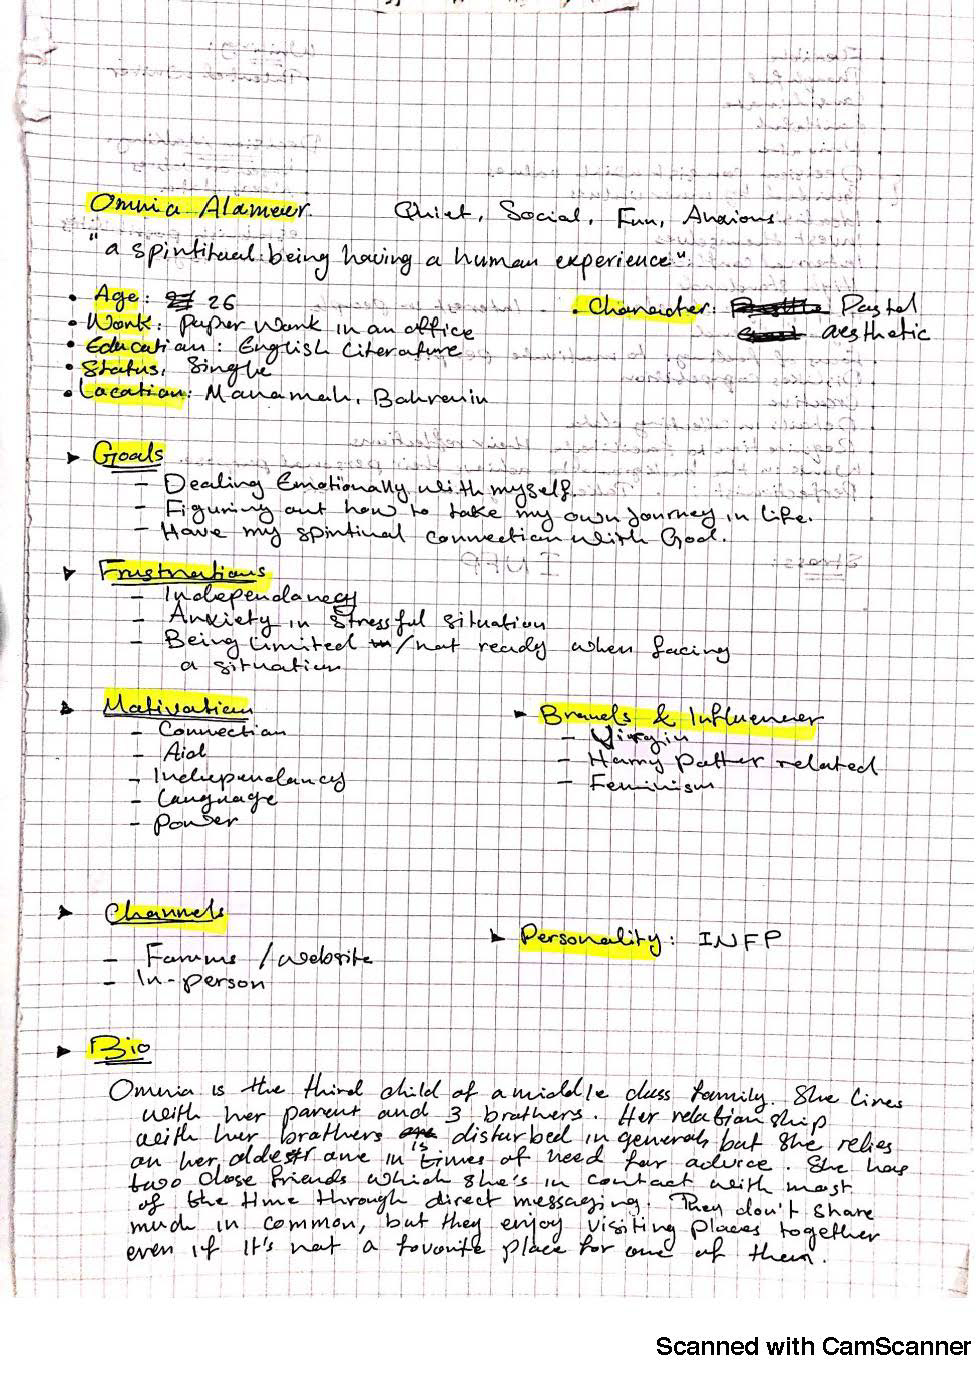 Omnia Alameer. Quiet, Social, Fun, Anxious
"a spintitual being having a human experience"
• Age: 26
• Work: paper work in an office
• Education: English Literature
• Status: Single
• Location: Manamah, Bahrain
• Character: Pastel
aesthetic
➤ Goals
– Dealing Emotionally with myself.
– Figuring out how to take my own journey in life.
– Have my spiritual connection with God.
➤ Frustrations
– Independancy
– Anxiety in stressful situation
– Being limited /not ready when facing
a situation
➤ Motivation
– Connection
– Aid
– Independancy
– Language
– Power
➤ Brands & Influencer
– Virgin
– Harry Potter related
– Feminism
➤ Channels
– Forums / website
– In-person
➤ Personality: INFP
➤ Bio
Omnia is the third child of a middle class family. She lives
with her parent and 3 brothers. Her relationship
with her brothers is disturbed in general, but she relies
on her oldest one in times of need for advice. She has
two close friends which she's in contact with most
of the time through direct messaging. They don't share
much in common, but they enjoy visiting places together
even if it's not a favorite place for one of them.
Scanned with CamScanner